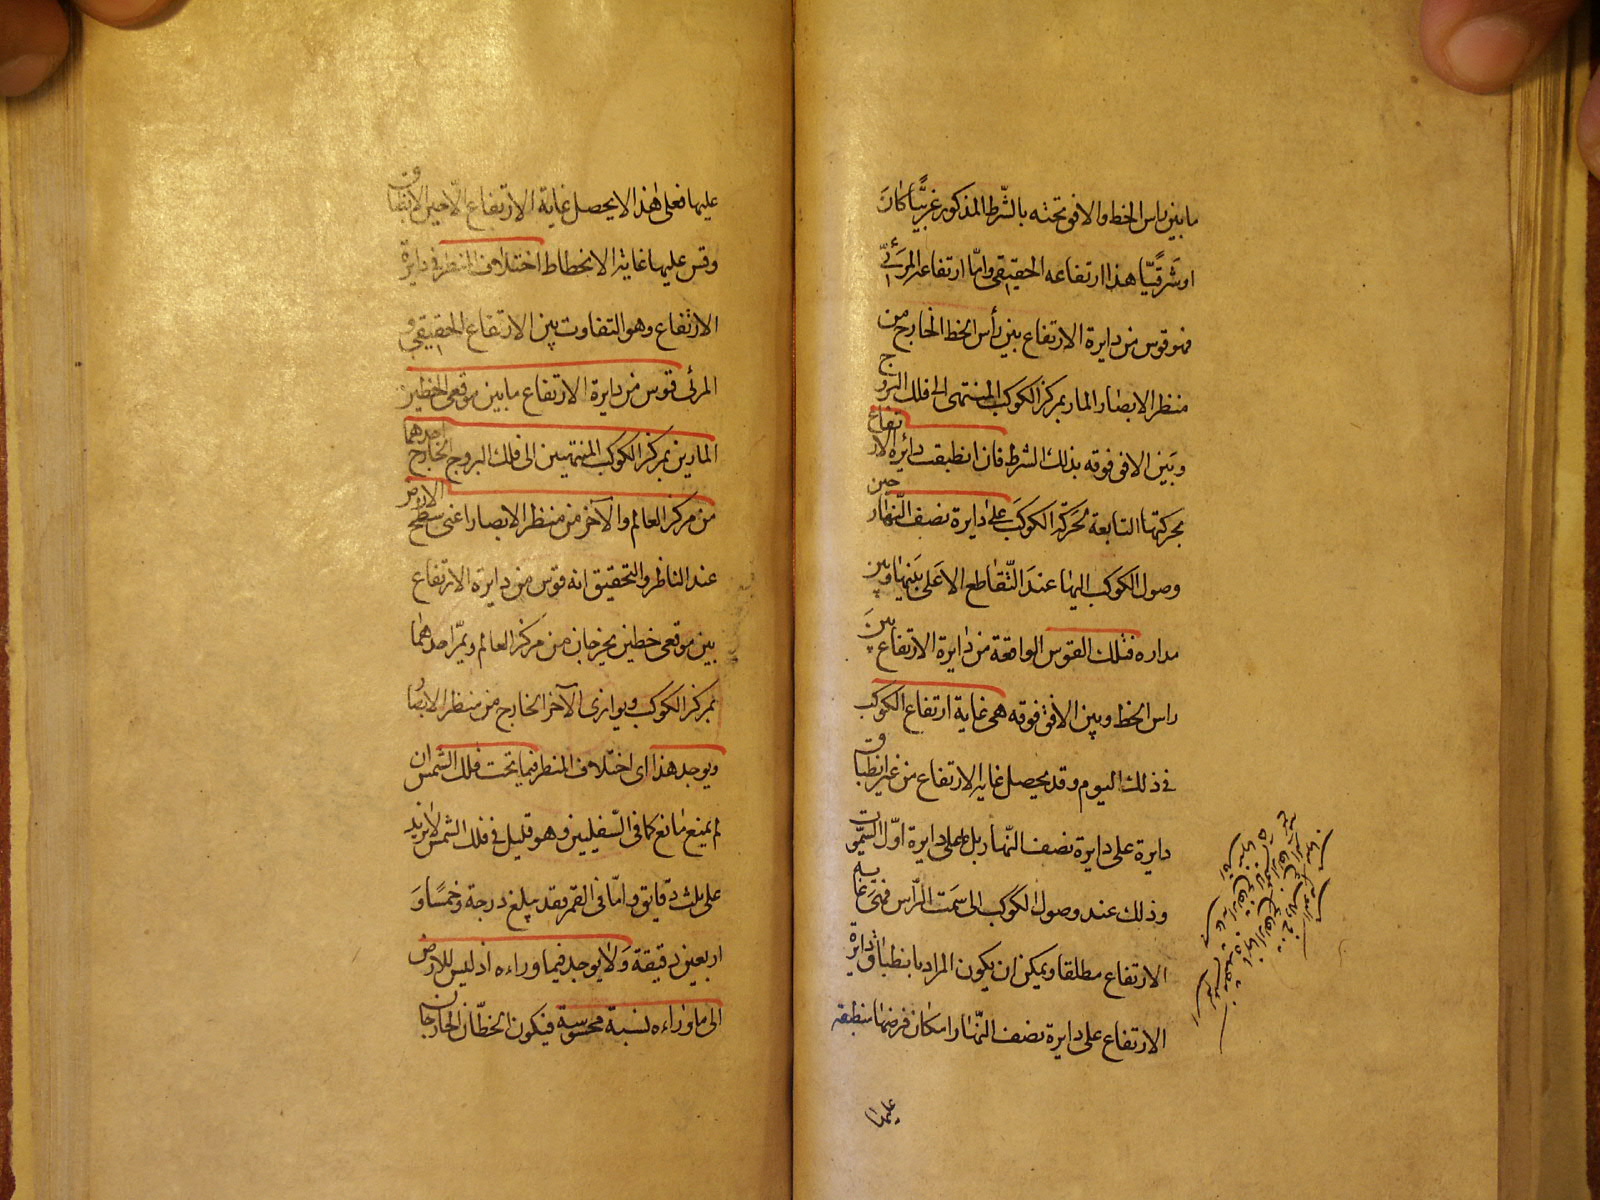 ما بين راس الخط والافق تحته بالشّرط المذكور غربيًّا كانَ
او شرقيًّا هذا ارتفاعه الحقيقى وامّا ارتفاعه المرئىّ
فهو قوس من دايرة الارتفاع بين رأس الخط الخارج من
منظر الابصار المار بمركز الكوكب المنتهى الى فلك البروج
وبين الافق فوقه بذلك الشرط فان انطبقت دائرة الارتفاع
بحركتها التابعة لحركة الكوكب على دايرة نصف النّهار حين
وصول الكوكب اليها عند التّقاطع الاعلى بينها وبين
مداره فتلك القوس الواقعة من دايرة الارتفاع بينَ
راس الخط وبين الافق فوقه هى غاية ارتفاع الكوكب
فى ذلك اليوم وقد يحصل غاية الارتفاع من غير انطباق
دايرة على دايرة نصف النّهار بل على دايرة اوّل السّموت
وذلك عند وصول الكوكب الى سمت الرّاس فهى غاية
الارتفاع مطلقا ويمكن ان يكون المراد بانطباق دايرة
الارتفاع على دايرة نصف النّهار امكان فرضها منطبقه
عليها
عليها فعلى هذا لا يحصل غاية الارتفاع الّا حين الانطباق
وقس عليها غاية الانحطاط اختلاف المنظر فى دايرة
الارتفاع وهو التفاوت بين الارتفاع الحقيقى و
المرئى قوس من دايرة الارتفاع ما بين موقعى الخطين
المارين بمركز الكوكب المنتهيين الى فلك البروج الخارج احدهما
من مركز العالم والآخر من منظر الابصار اعنى سطح الارض
عند الناظر والتحقيق انه قوس من دايرة الارتفاع
بين موقعى خطين يخرجان من مركز العالم ويمرّ احدهما
بمركز الكوكب ويوازى الآخر الخارج من منظر الابصار
ويوجد هذا اى اختلاف المنظر فيما تحت فلك الشمس ان
لم يمنع مانع كما فى السّفليين وهو قليل فى فلك الشمس لا يزيد
على ثلث دقايق وامّا فى القمر فقد يبلغ درجة وخمسًا وَ
اربعين دقيقة ولا يوجد فيما وراءه اذ ليس للارض
الى ما وراءه نسبة محسوسة فيكون الخطّان الخارجان